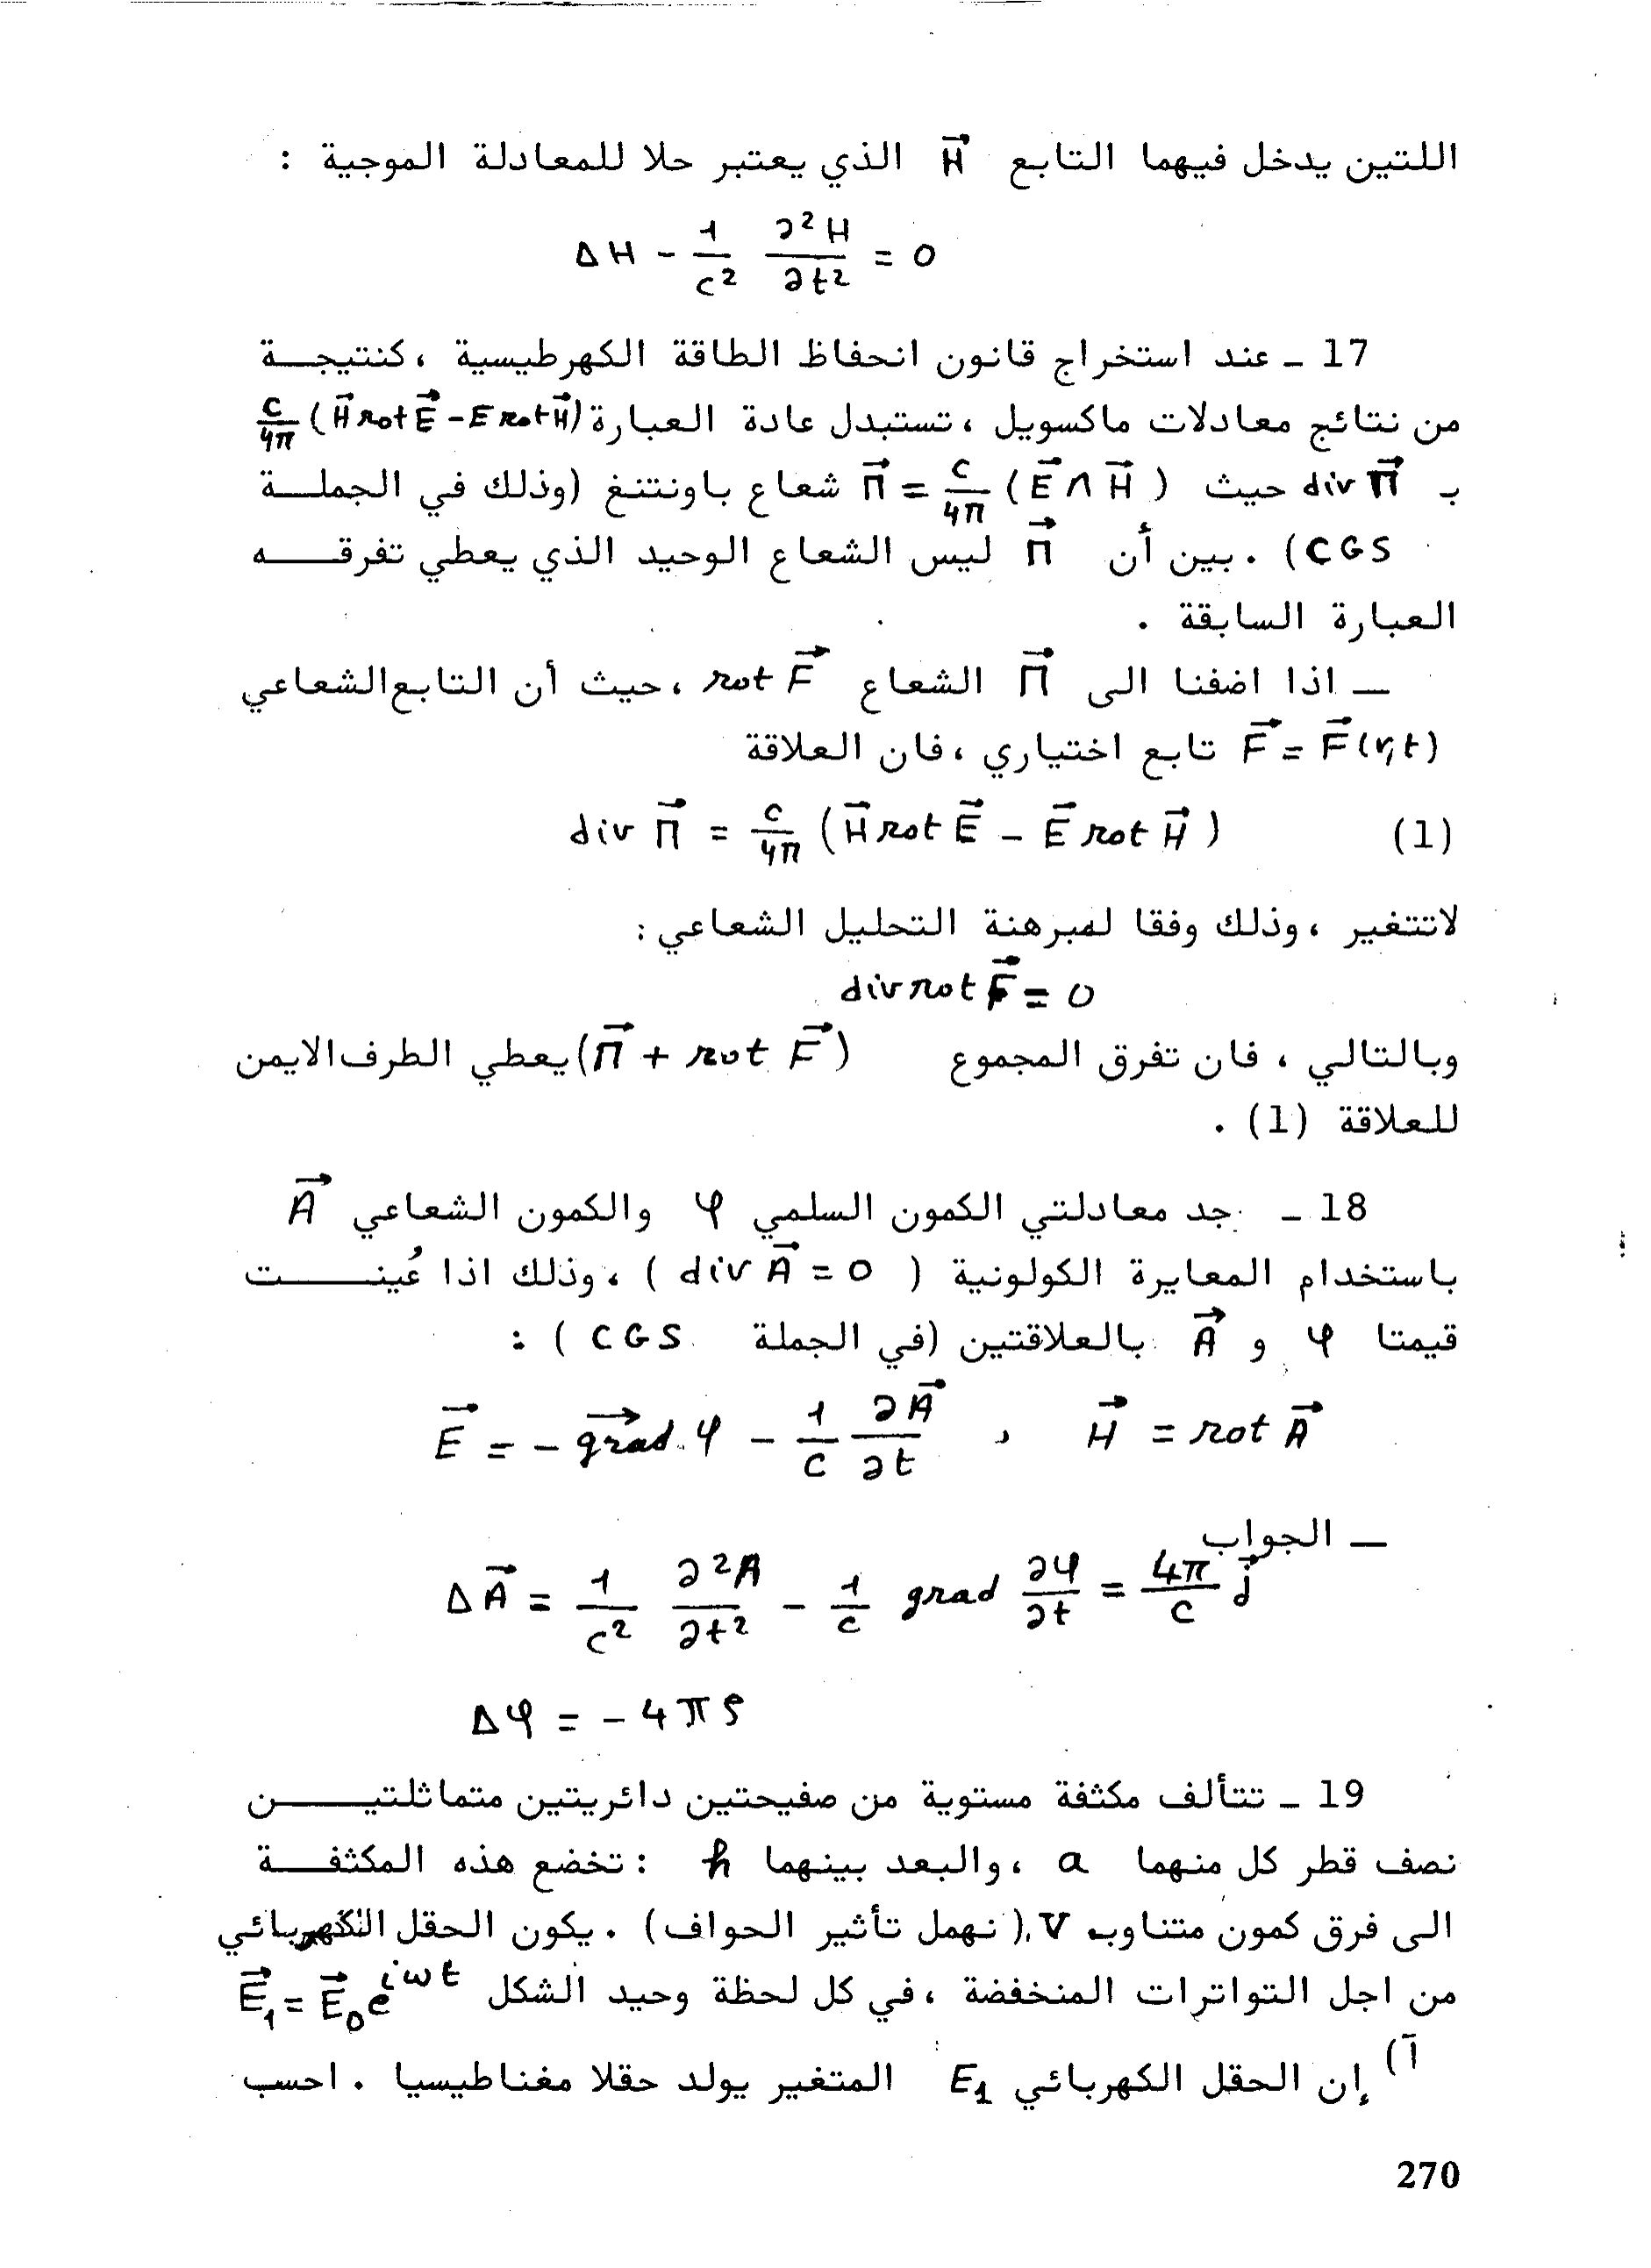 اللتين يدخل فيهما التابع H⃗ الذي يعتبر حلا للمعادلة الموجية :
ΔH - 1/c² ∂²H/∂t² = 0
17 ـ عند استخراج قانون انحفاظ الطاقة الكهرطيسية ، كنتيجـــة
من نتائج معادلات ماكسويل ، تستبدل عادة العبارة c/4π (H⃗ rot E⃗ - E rot H⃗)
بـ div Π⃗ حيث Π⃗ = c/4π (E⃗ ∧ H⃗) شعاع باونتنغ (وذلك في الجملــة
CGS) . بين أن Π⃗ ليس الشعاع الوحيد الذي يعطي تفرقــــه
العبارة السابقة .
ـــ اذا اضفنا الى Π⃗ الشعاع rot F⃗ ، حيث أن التابع الشعاعي
F⃗ = F⃗(r,t) تابع اختياري ، فان العلاقة
div Π⃗ = c/4π (H⃗ rot E⃗ - E⃗ rot H⃗) (1)
لاتتغير ، وذلك وفقا لمبرهنة التحليل الشعاعي :
div rot F⃗ = 0
وبالتالي ، فان تفرق المجموع (Π⃗ + rot F⃗) يعطي الطرف الايمن
للعلاقة (1) .
18 ـ جد معادلتي الكمون السلمي φ والكمون الشعاعي A⃗
باستخدام المعايرة الكولونية ( div A⃗ = 0 ) ، وذلك اذا عُينـــــت
قيمتا φ و A⃗ بالعلاقتين (في الجملة CGS ) :
E⃗ = - grad φ - 1/c ∂A⃗/∂t , H⃗ = rot A⃗
ـــ الجواب
ΔA⃗ = 1/c² ∂²A/∂t² - 1/c grad ∂φ/∂t = 4π/c j⃗
Δφ = - 4πρ
19 ـ تتألف مكثفة مستوية من صفيحتين دائريتين متماثلتيــــن
نصف قطر كل منهما a ، والبعد بينهما h : تخضع هذه المكثفــة
الى فرق كمون متناوب V ، ( نهمل تأثير الحواف) . يكون الحقل الكهربائي
من اجل التواترات المنخفضة ، في كل لحظة وحيد الشكل E⃗₁ = E⃗₀ e^iωt
آ) إن الحقل الكهربائي E₁ المتغير يولد حقلا مغناطيسيا . احسب
270